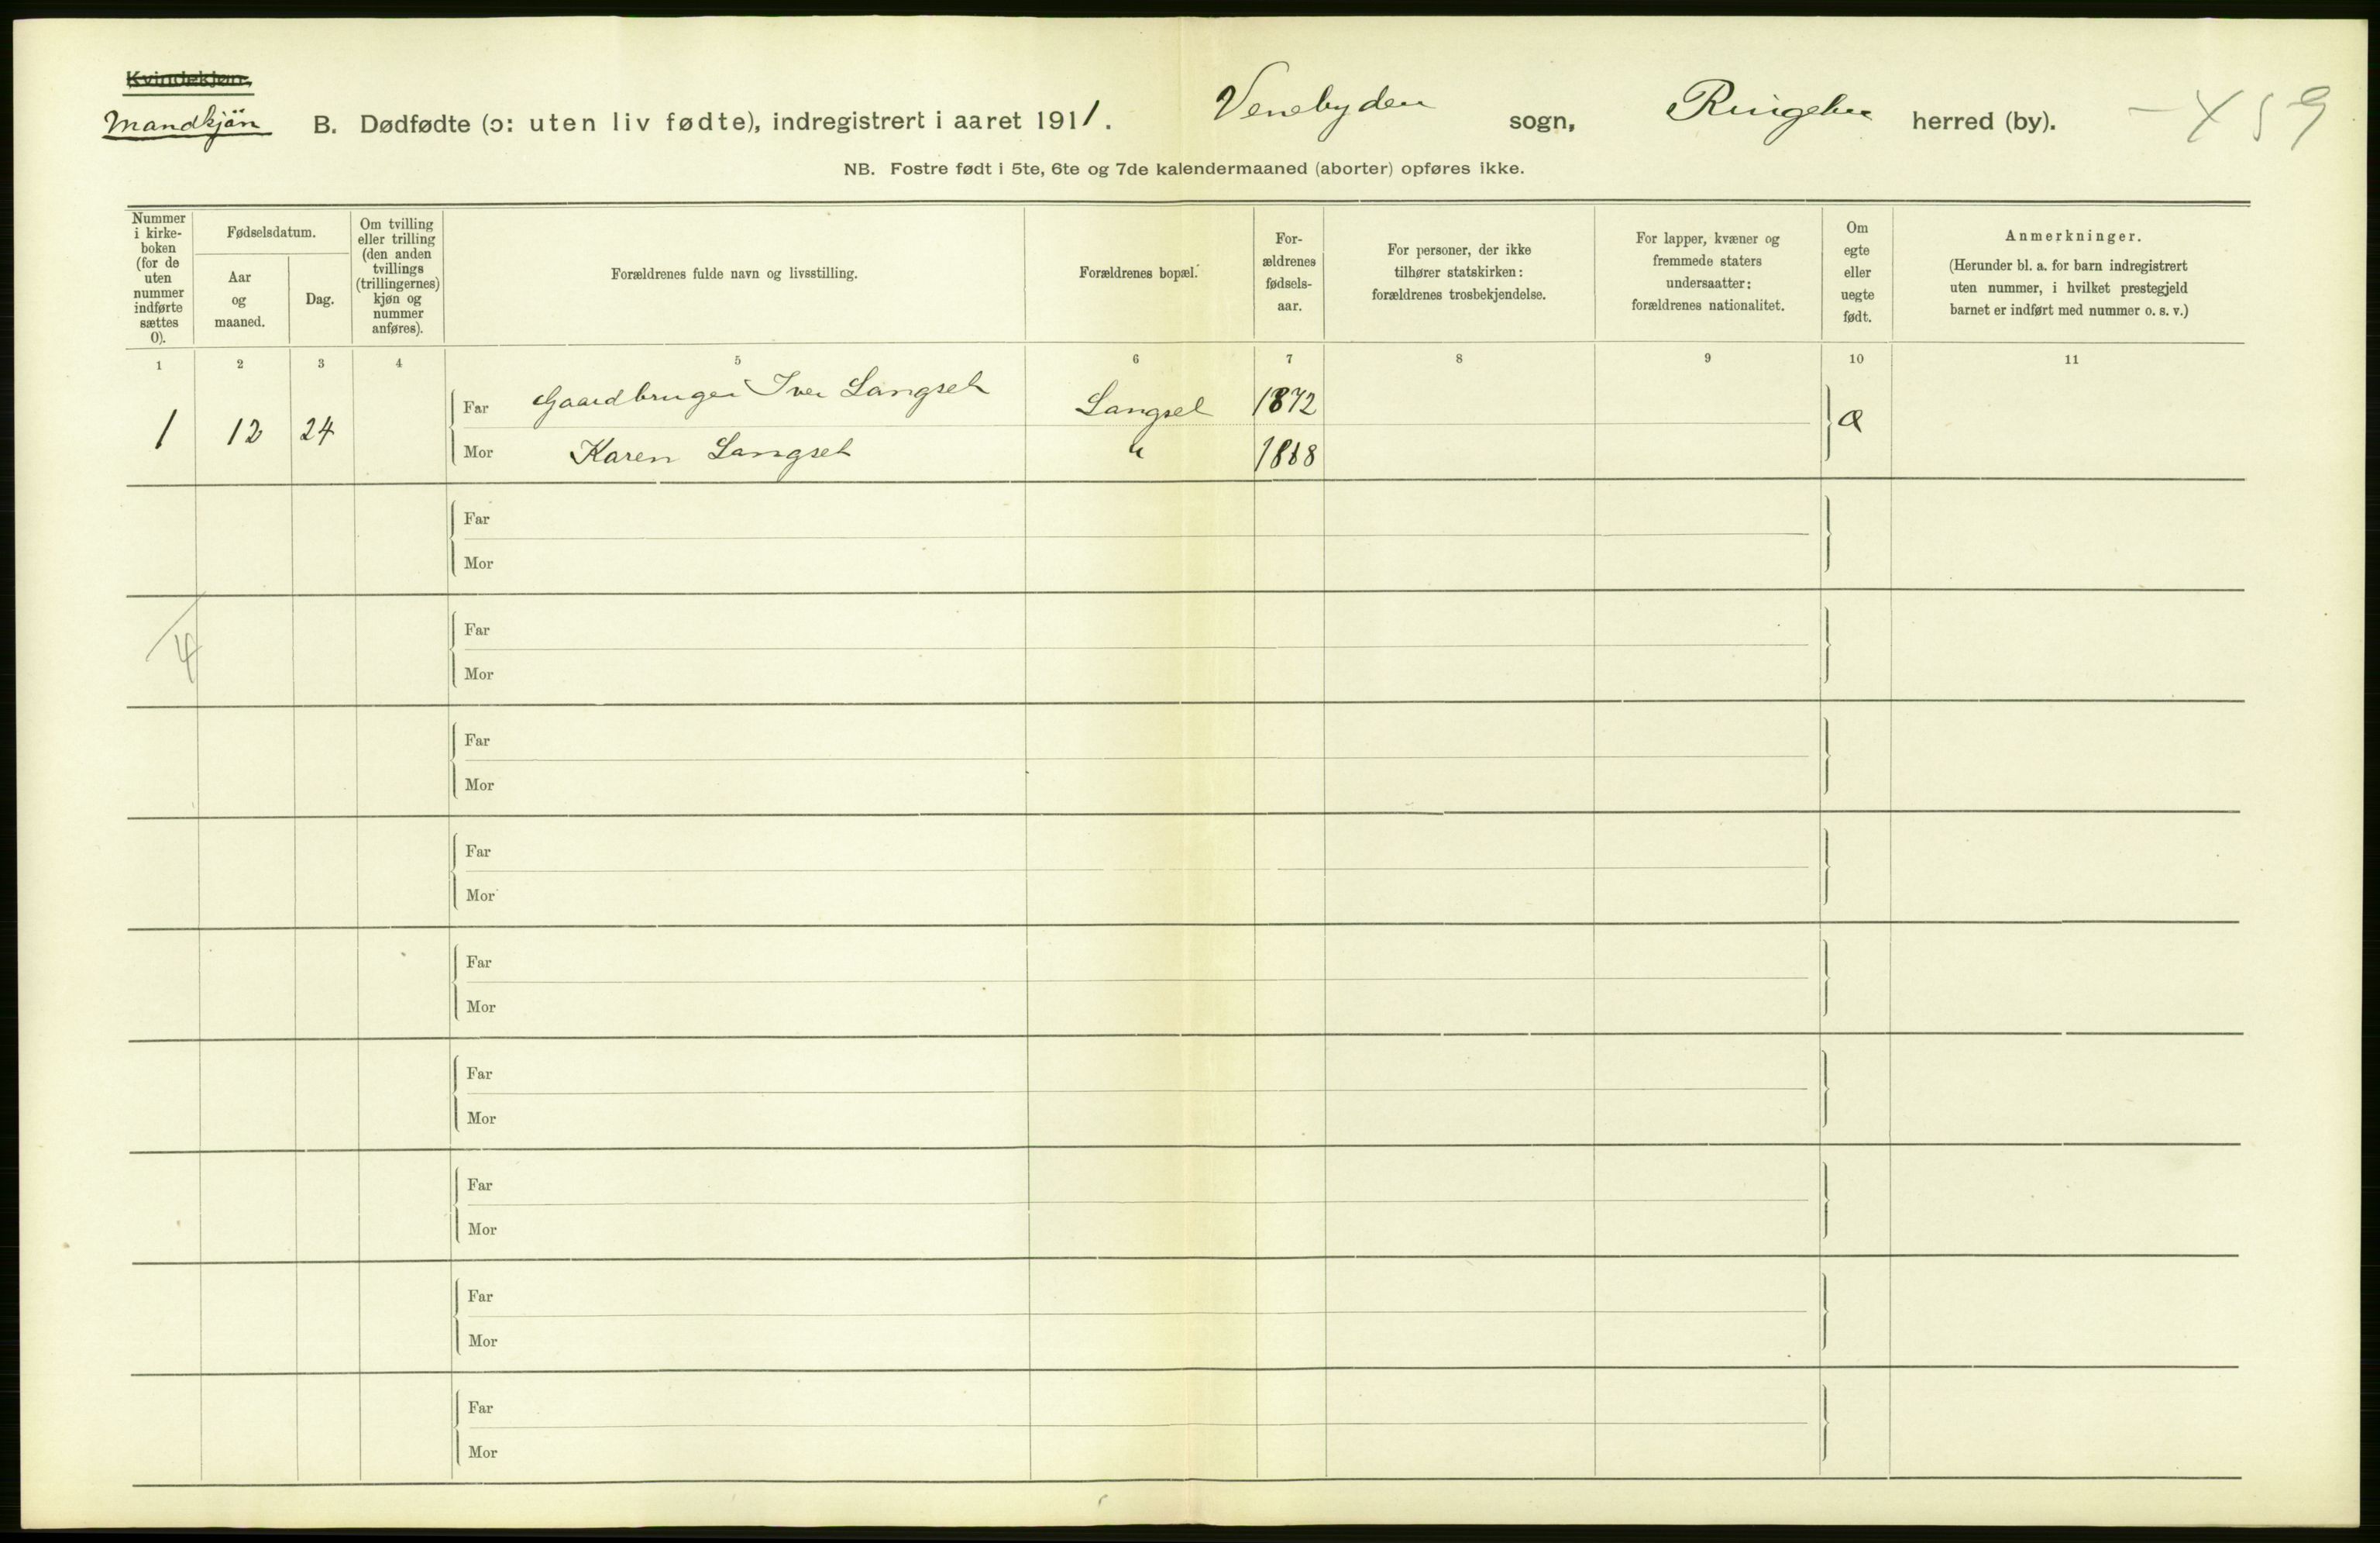 Kvindekjøn,
Mandkjön B. Dødfødte (ɔ: uten liv fødte), indregistrert i aaret 1911. Venebyden sogn, Ringebu herred (by).
459
NB. Fostre født i 5te, 6te og 7de kalendermaaned (aborter) opføres ikke.
Nummer
i kirke-
boken
(for de
uten
nummer
indførte
sættes
0).
Fødselsdatum.
Aar
og
maaned.
Dag.
Om tvilling
eller trilling
(den anden
tvillings
(trillingernes)
kjøn og
nummer
anføres).
Forældrenes fulde navn og livsstilling.
Forældrenes bopæl.
For-
ældrenes
fødsels-
aar.
For personer, der ikke
tilhører statskirken:
forældrenes trosbekjendelse.
For lapper, kvæner og
fremmede staters
undersaatter:
forældrenes nationalitet.
Om
egte
eller
uegte
født.
Anmerkninger.
(Herunder bl. a. for barn indregistrert
uten nummer, i hvilket prestegjeld
barnet er indført med nummer o. s. v.)
1 2 3 4 5 6 7 8 9 10 11
1 12 24
Far Gaardbruger Iver Langset Langset 1872
Mor Karen Langset " 1868
Far
Mor
4
Far
Mor
Far
Mor
Far
Mor
Far
Mor
Far
Mor
Far
Mor
Far
Mor
Far
Mor